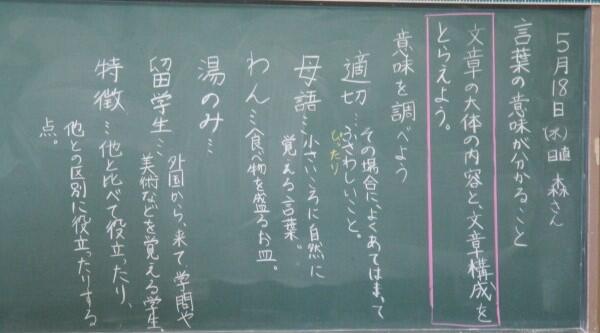 5月18日(水)日直 森さん
言葉の意味が分かること
文章の大体の内容と、文章構成を
とらえよう。
意味を調べよう
適切…その場合に、よくあてはまって
ふさわしいこと。
ぴったり
母語…小さいころに自然に
覚える言葉。
わん…食べ物を盛るお皿。
湯のみ…
留学生…外国から、来て、学問や
美術などを覚える学生、
特徴…他と比べて役立ったり、
他との区別に役立ったりする
点。